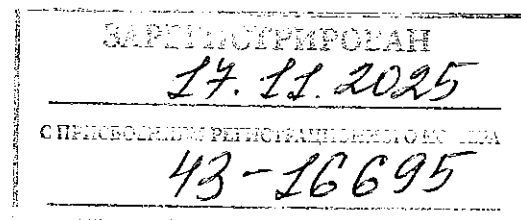 ЗАРЕГИСТРИРОВАН
17.11.2025
С ПРИСВОЕНИЕМ РЕГИСТРАЦИОННОГО НОМЕРА
43-16695